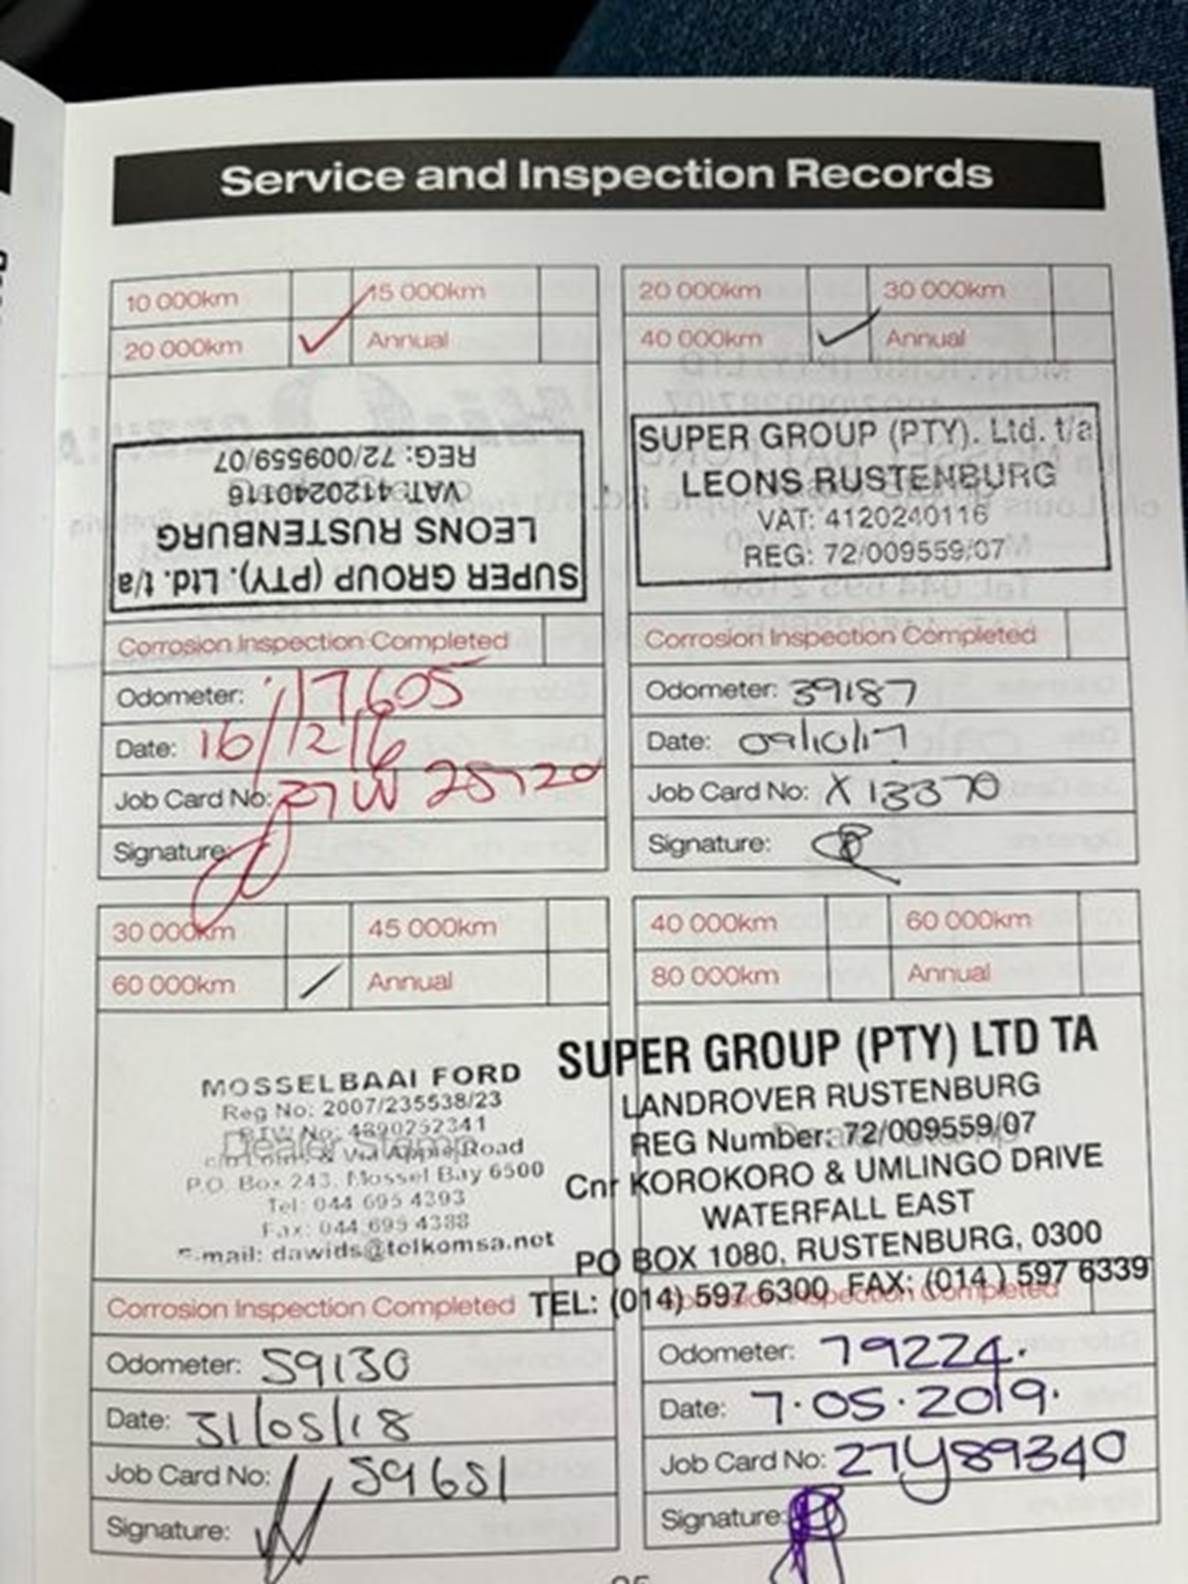 Service and Inspection Records
10 000km 15 000km
20 000km Annual
SUPER GROUP (PTY). Ltd. t/a
LEONS RUSTENBURG
VAT: 4120240116
REG: 72/009559/07
Corrosion Inspection Completed
Odometer: 17605
Date: 16/12/16
Job Card No: 27W 25720
Signature:
20 000km 30 000km
40 000km Annual
SUPER GROUP (PTY). Ltd. t/a
LEONS RUSTENBURG
VAT: 4120240116
REG: 72/009559/07
Corrosion Inspection Completed
Odometer: 39187
Date: 09/10/17
Job Card No: X 13370
Signature:
30 000km 45 000km
60 000km Annual
MOSSELBAAI FORD
Reg No: 2007/235538/23
BTW No: 4890252341
Dealer Stamp
Road
P.O. Box 243, Mossel Bay 6500
Tel: 044 695 4393
Fax: 044 695 4388
E-mail: dawids@telkomsa.net
Corrosion Inspection Completed
Odometer: 59130
Date: 31/05/18
Job Card No: 59651
Signature:
40 000km 60 000km
80 000km Annual
SUPER GROUP (PTY) LTD TA
LANDROVER RUSTENBURG
REG Number: 72/009559/07
Cnr KOROKORO & UMLINGO DRIVE
WATERFALL EAST
PO BOX 1080, RUSTENBURG, 0300
TEL: (014) 597 6300 FAX: (014) 597 6339
Corrosion Inspection Completed
Odometer: 79224.
Date: 7.05.2019.
Job Card No: 27Y89340
Signature: